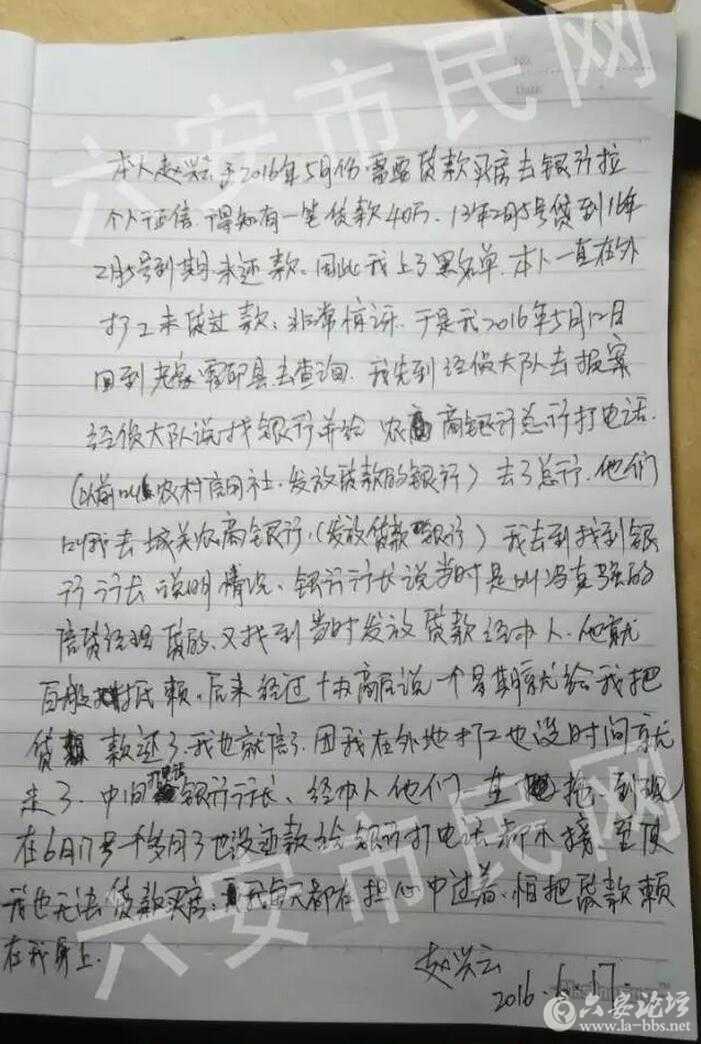 本人赵兴云于2016年5月份需要贷款买房去银行拉
个人征信.得知有一笔贷款40万.13年2月5号贷到16年
2月5号到期未还款.因此我上了黑名单.本人一直在外
打工未贷过款;非常惊讶.于是我2016年5月12日
回到老家霍邱县去查询.我先到经侦大队去报案
经侦大队说找银行并给农商银行总行打电话.
(以前叫农村信用社.发放贷款的银行)去了总行.他们
叫我去城关农商银行.(发放贷款银行)我去到找到银
行行长说明情况、银行行长说当时是叫冯真强的
信贷经理贷的.又找到当时发放贷款经办人.他就
百般抵赖.后来经过协商后说一个星期就给我把
贷款还了.我也就信了.因我在外地打工也没时间就
走了.中间打电话银行行长、经办人他们一直拖、到现
在6月17号一个多月了也没还款给银行打电话都不接.至使
我也无法贷款买房;我每天都在担心中过着.怕把贷款赖
在我身上.
赵兴云
2016.6.17.
六安市民网
六安市民网
六安市民网
六安论坛
www.la-bbs.net